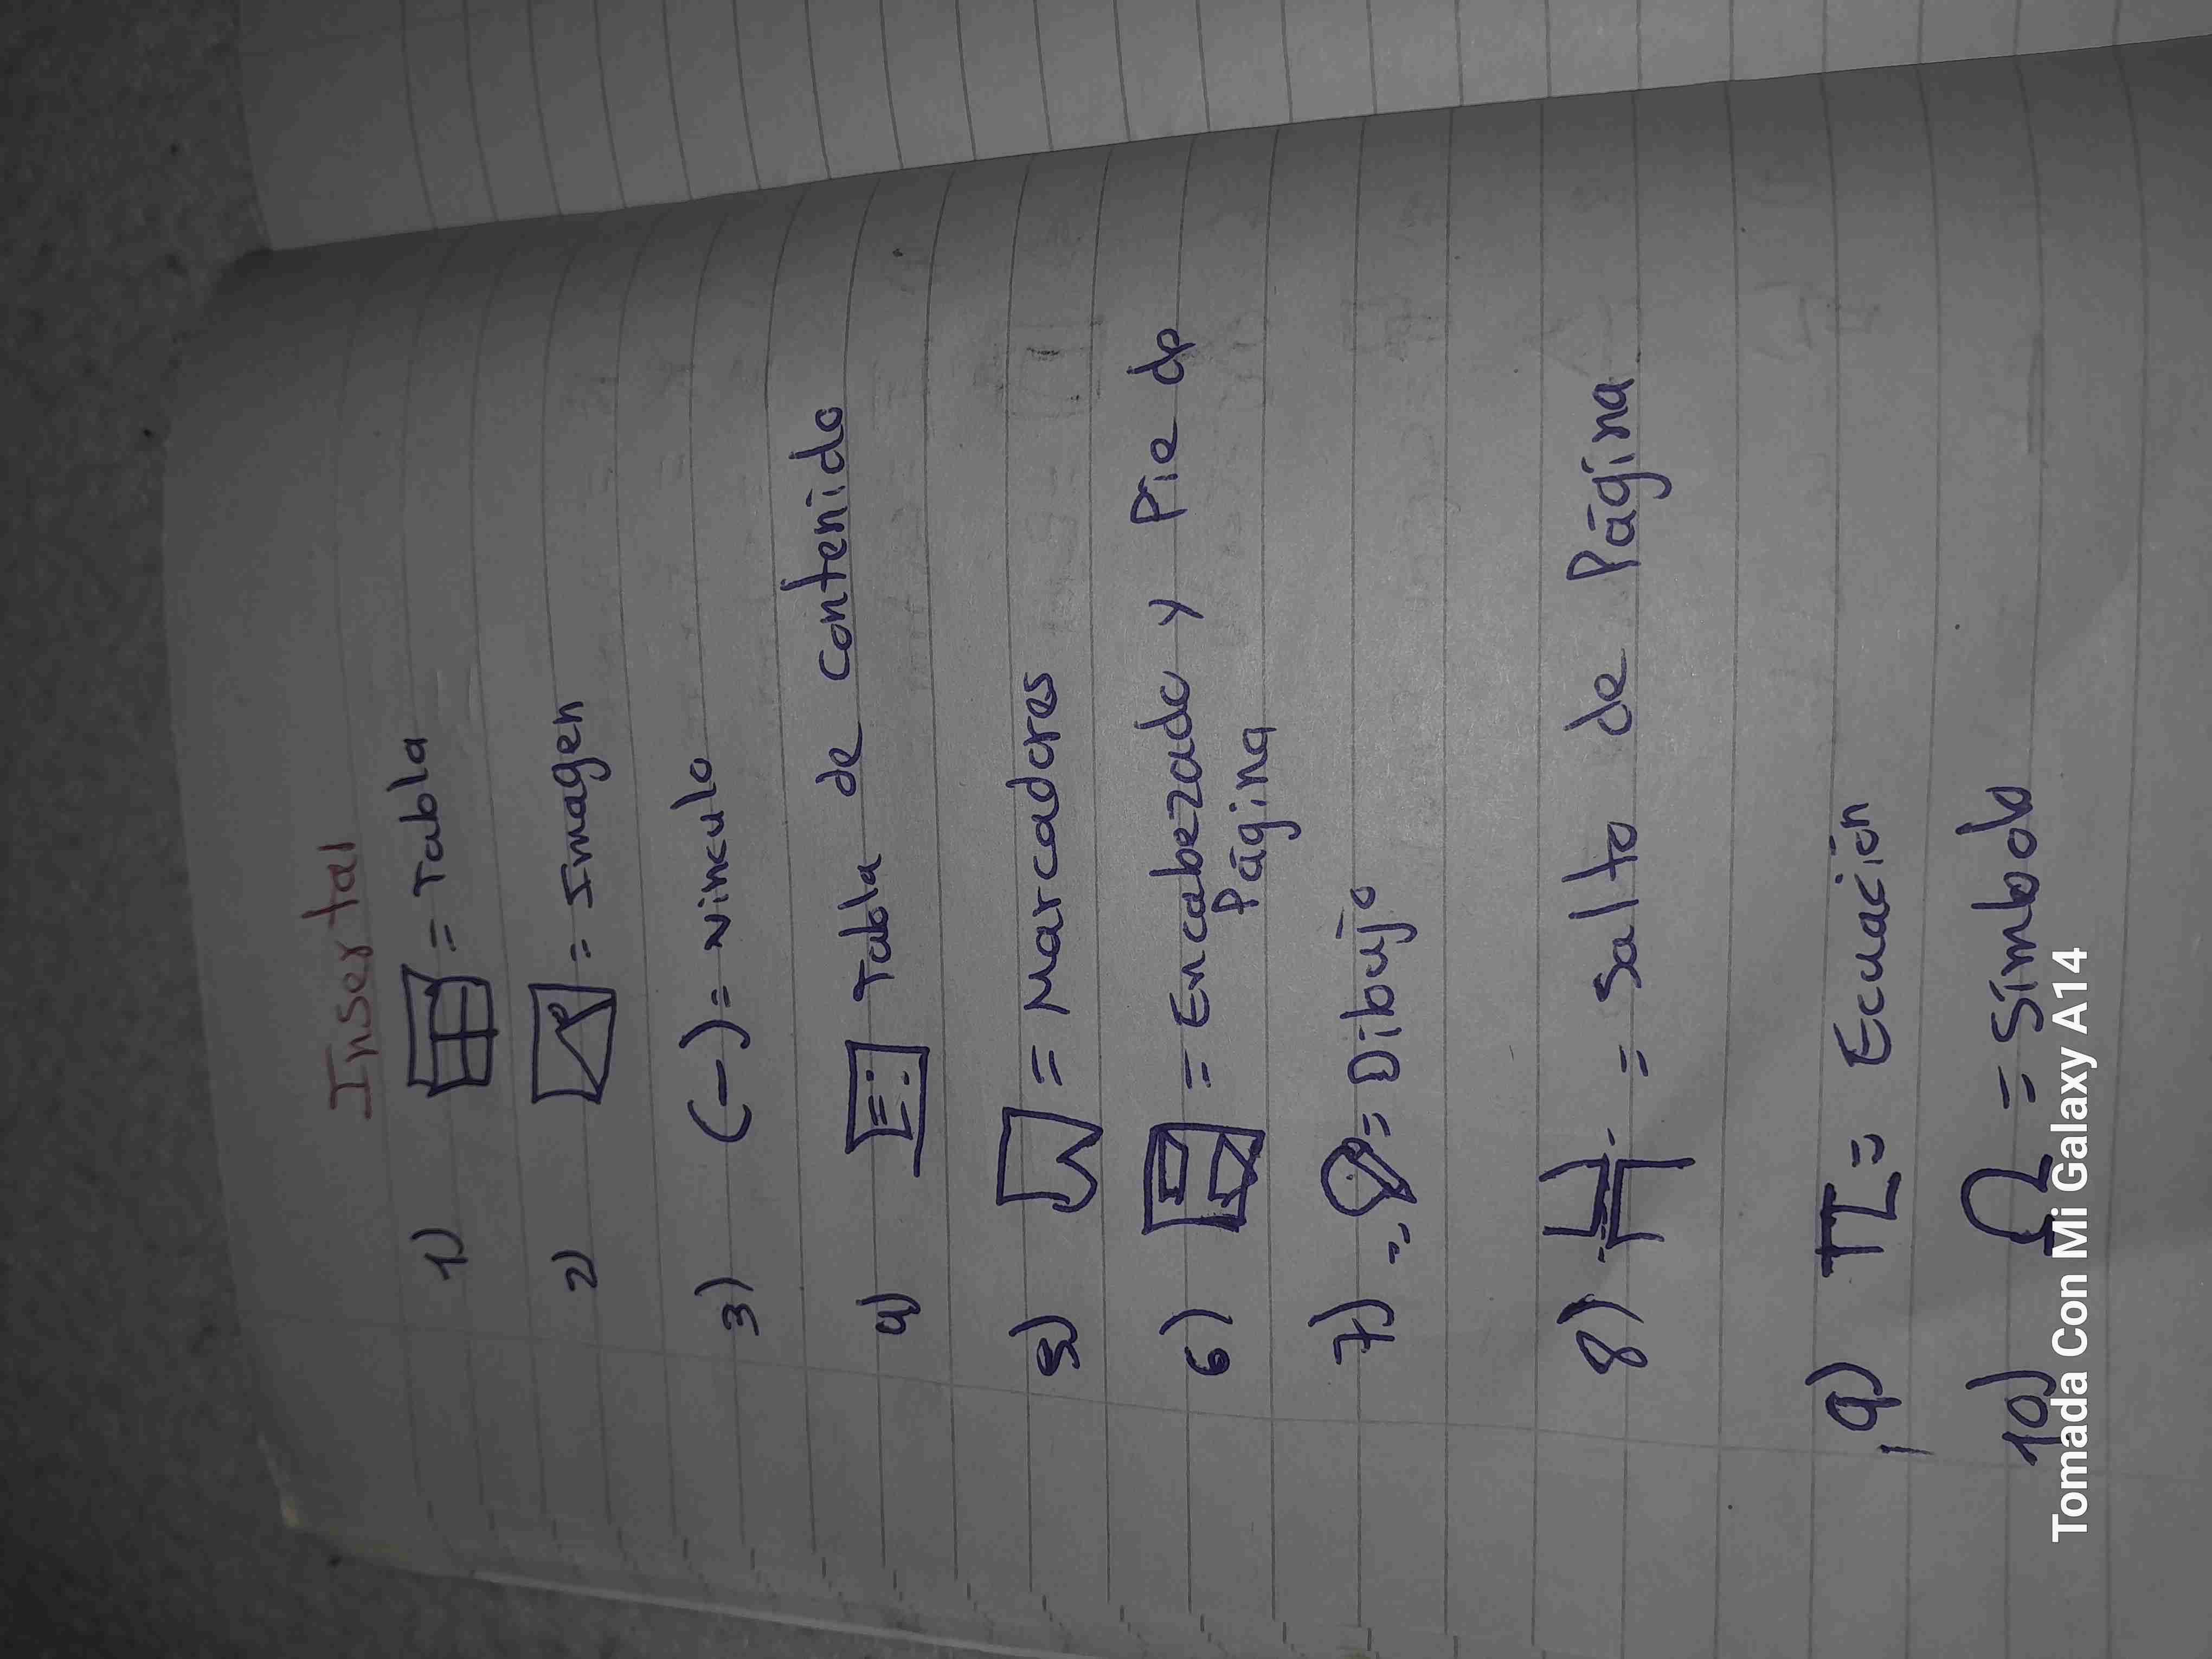 Insertar
1) = Tabla
2) = Imagen
3) (-) = Vinculo
4) Tabla de contenido
5) = Marcadores
6) = Encabezado y Pie de
Página
7) = Dibujo
8) = Salto de Página
9) π = Ecuación
10) Ω = Símbolo
Tomada Con Mi Galaxy A14